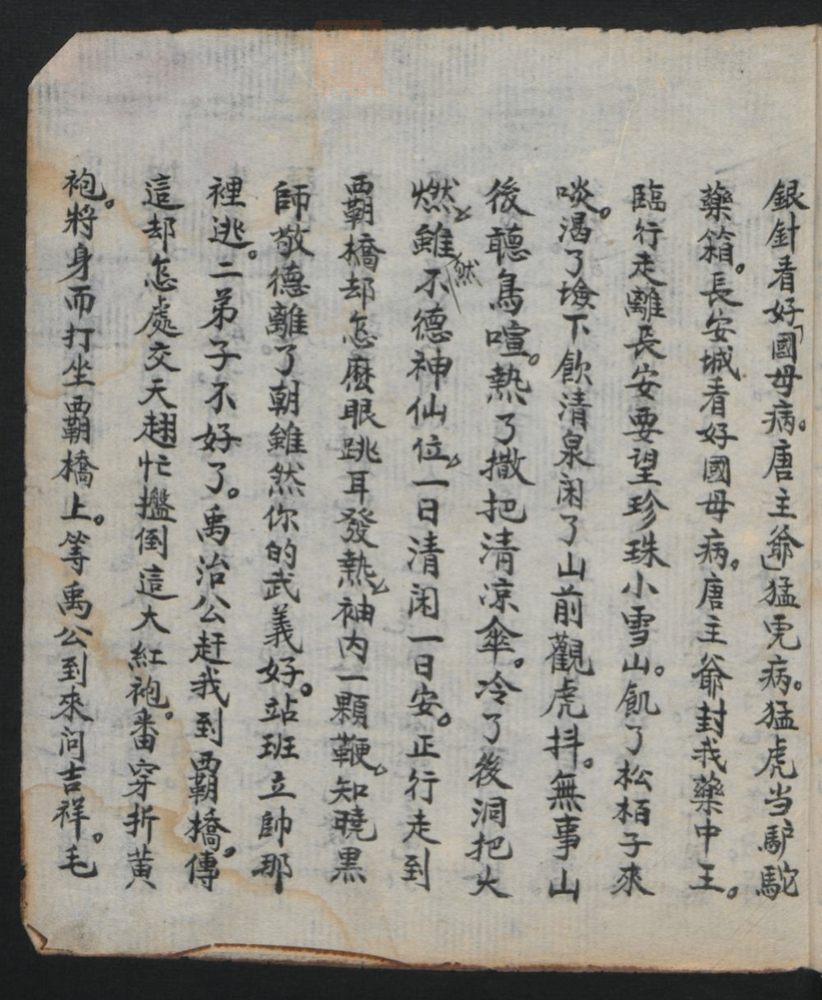 銀針看好國母病。唐主爺猛虎病。猛虎当馿駝
藥箱。長安城看好國母病。唐主爺封我藥中王。
臨行走離長安要望珍珠小雪山。飢了松栢子來
啖。渴了墝下飲清泉闲了山前觀虎抖。無事山
後聽鳥喧。熱了撒把清凉傘。冷了後洞把火
燃。雖然不德神仙位。一日清闲一日安。正行走到
覇橋却怎麽眼跳耳發熱。袖内一顆鞭。知曉黒
師敬德離了朝雖然你的武義好。站班立帥那
裡逃。二弟子不好了。禹治公赶我到覇橋。傳
這却怎處交天趐忙攨倒這大紅袍。番穿折黄
袍。將身而打坐覇橋上。等禹公到來问吉祥。毛